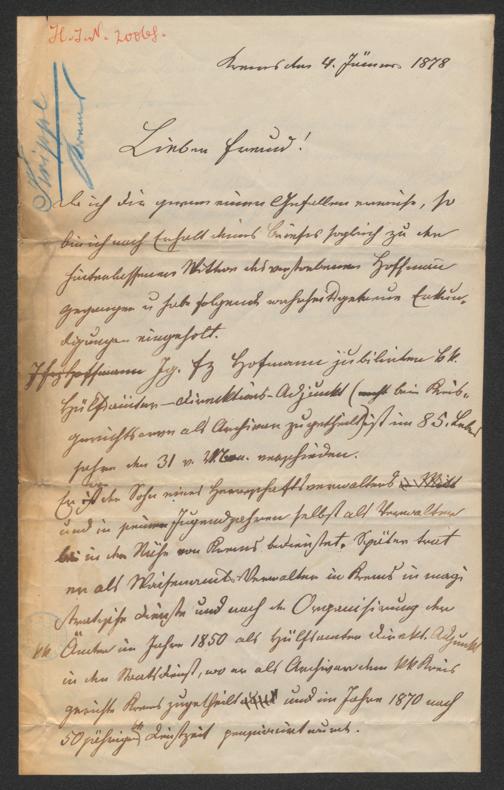 H.I.N. 20068.
Krems den 4. Jänner 1878
Knippe
Krems
Lieber Freund!
Da ich dir gerne einen Gefallen erweise, so
bin ich nach Erhalt deines Briefes sogleich zu der
hinterlassenen Wittwe des verstorbenen Hoffmann
gegangen u habe folgende wahrheitsgetreue Erkun-
digungen eingeholt.
Jg. Fz Hofmann jubilirter k.k.
Hülfsämter-Direktions-Adjunkt ( beim Kreis-
gerichte als Archivar zugetheilt) ist im 85. Lebens
jahre den 31 v. verschieden.
Er der Sohn eines Herrschaftsverwalters
und in seinen Jugendjahren selbst als Verwalter
in der Nähe von Krems bedienstet. Später trat
er als Waisenamts-Verwalter in Krems in magi
stratische Dienste und nach der Organisirung der
kk. Ämter im Jahre 1850 als Hülfsämter Direkt. Adjunkt
in den Staatsdienst, wo er als Archivar dem kk Kreis
gerichte Krems zugetheilt und im Jahre 1870 nach
50jähriger Dienstzeit pensionirt wurde.